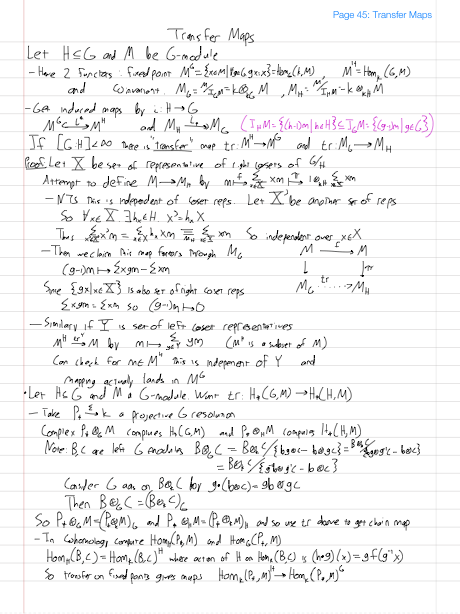 Page 45: Transfer Maps
Transfer Maps
Let H≤G and M be G-module
- Have 2 functors: fixed point M^G = {x∈M | gx=x} = Hom_G(k,M), M^H = Hom_H(k,M)
and coinvariant, M_G = M/I_G M = k⊗_G M, M_H = M/I_H M = k⊗_H M
- Get induced maps by i: H→G
M^G → M^H and M_H → M_G (I_H M = {(h-1)m | h∈H} ≤ I_G M = {(g-1)m | g∈G})
If [G:H]<∞ there is "transfer" map tr: M^H → M^G and tr: M_G → M_H
Proof: Let X be set of representative of right cosets of G/H
Attempt to define M → M_H by m ↦ Σ_{x∈X} xm ↦ 1⊗_H Σ_{x∈X} xm
- NTS this is independent of coset reps. Let X' be another set of reps
So ∀x∈X ∃h_x∈H x'=h_x X
Thus Σ x'm = Σ_{x∈X} h_x xm ≡ Σ_{x∈X} xm So independent over x∈X
- Then we claim this map factors through M_G
M → M
(g-1)m ↦ Σxgm - Σxm
Since {gx | x∈X} is also set of right coset reps
M_G ⇢ M_H
Σxgm = Σxm so (g-1)m ↦ 0
- Similarly if Y is set of left coset representatives
M^H → M by m ↦ Σ_{y∈Y} ym (M^H is a subset of M)
Can check for m∈M^H this is independent of Y and
mapping actually lands in M^G
• Let H≤G and M a G-module. Want tr: H_*(G,M) → H_*(H,M)
- Take P_* → k a projective G resolution
Complex P_*⊗_G M computes H_*(G,M) and P_*⊗_H M computes H_*(H,M)
Note: B,C are left G modules B⊗_G C = B⊗C/{bg⊗c - b⊗gc}
= B⊗C/{gb⊗gc - b⊗c}
Consider G acts on B⊗_k C by g•(b⊗c) = gb⊗gc
Then B⊗_G C = (B⊗C)_G
So P_*⊗_G M = (P_*⊗M)_G and P_*⊗_H M = (P_*⊗M)_H and so use tr above to get chain map
- In cohomology compute Hom_H(P_*,M) and Hom_G(P_*,M)
Hom_H(B,C) = Hom_k(B,C)^H where action of H on Hom_k(B,C) is
So transfer on fixed points gives maps Hom_k(P_*,M)^H → Hom_k(P_*,M)^G